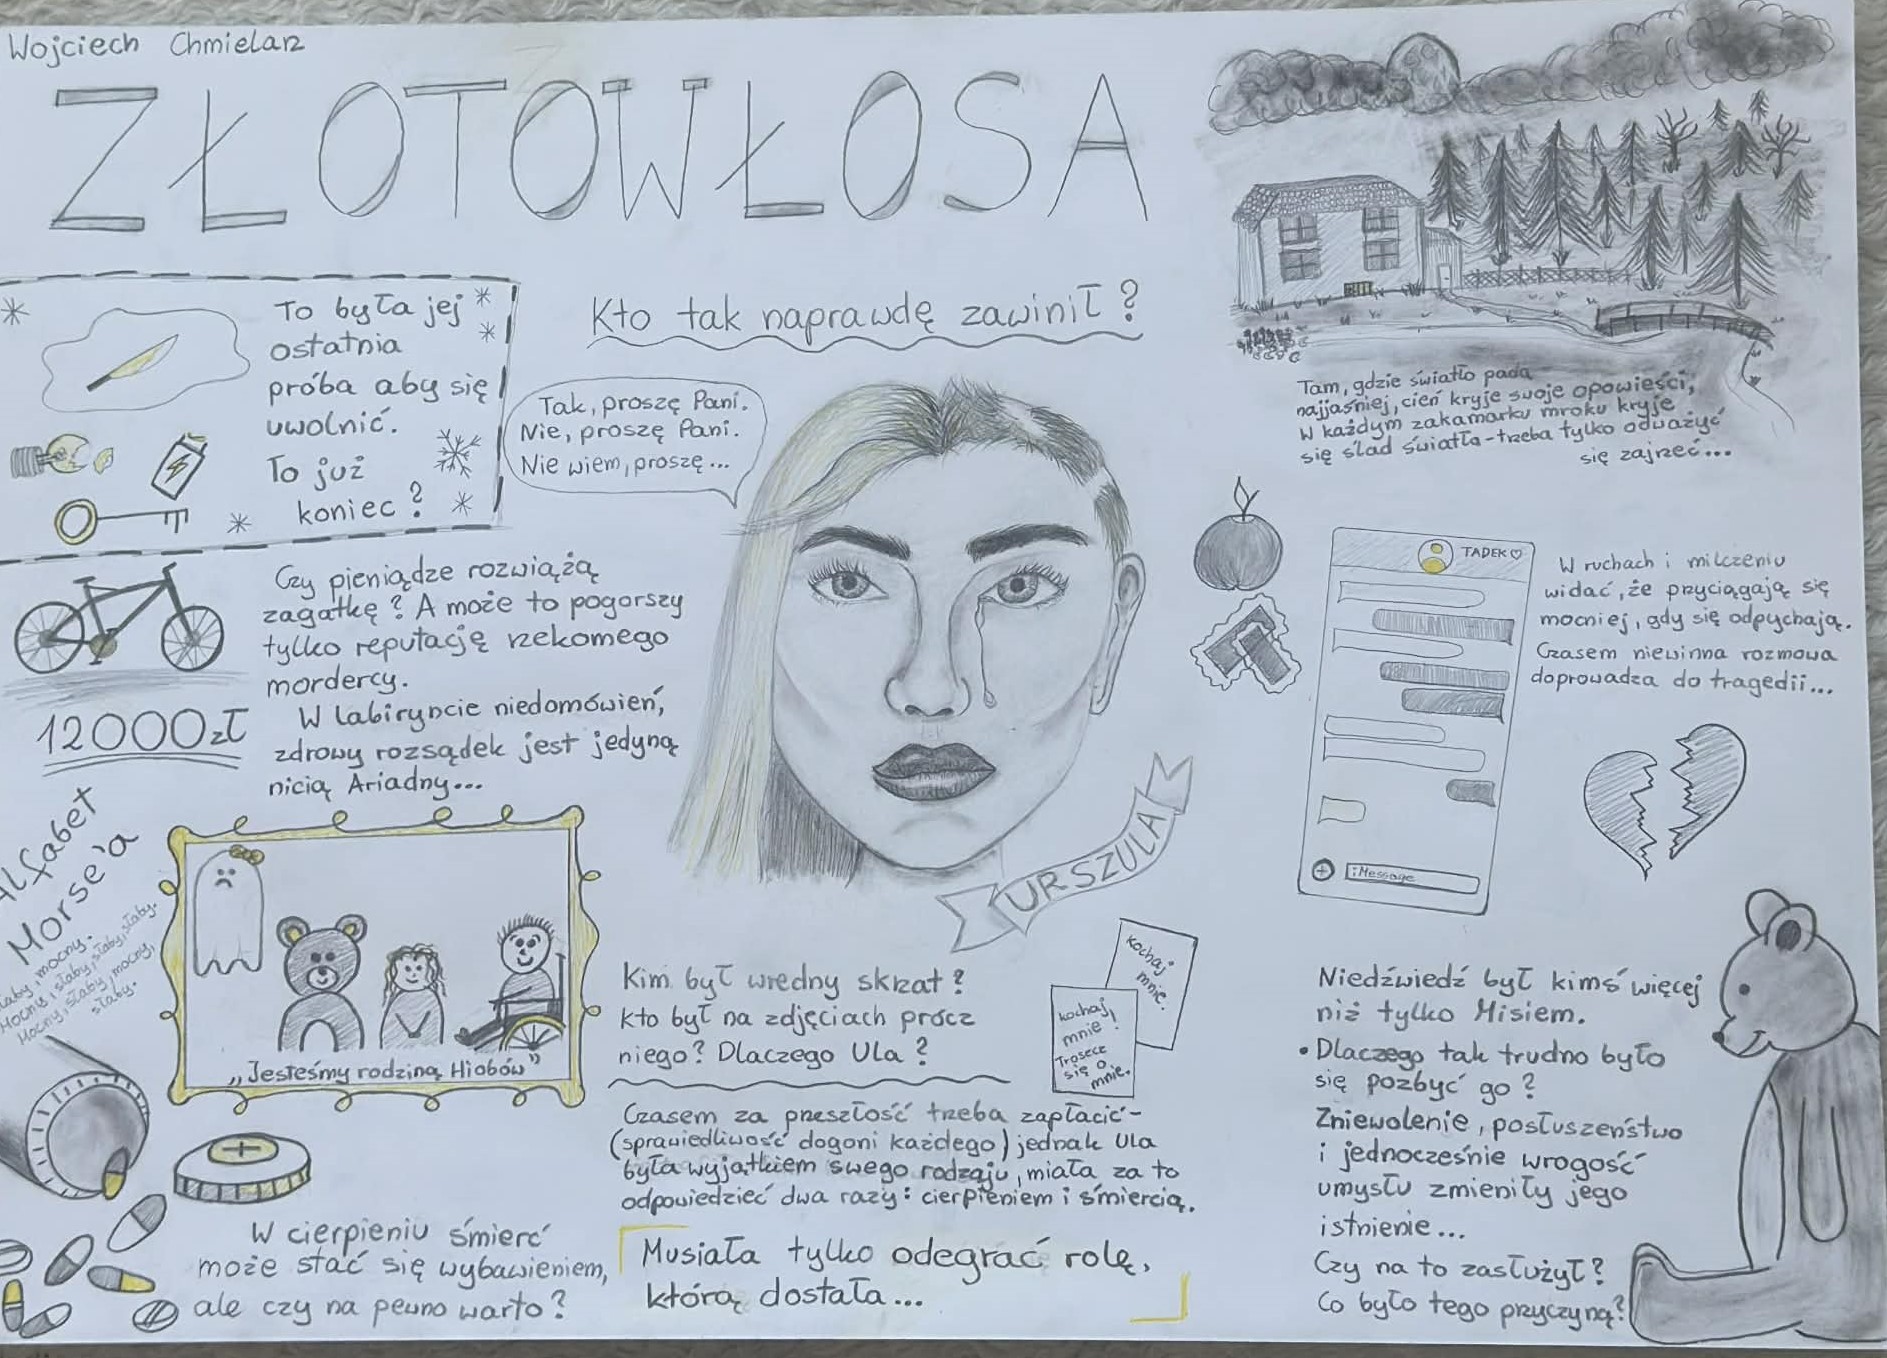 Wojciech Chmielarz
ZŁOTOWŁOSA
Kto tak naprawdę zawinił?
To była jej
ostatnia
próba aby się
uwolnić.
To już
koniec?
Tak, proszę Pani.
Nie, proszę Pani.
Nie wiem, proszę...
Tam, gdzie światło pada
najjaśniej, cień kryje swoje opowieści,
W każdym zakamarku mroku kryje
się ślad światła-trzeba tylko odważyć
się zajrzeć...
Czy pieniądze rozwiążą
zagatkę? A może to pogorszy
tylko reputację rzekomego
mordercy.
W labiryncie niedomówień,
zdrowy rozsądek jest jedyną
nicią Ariadny...
12000zł
TADEK
iMessage
W ruchach i milczeniu
widać, że przyciągają się
mocniej, gdy się odpychają.
Czasem niewinna rozmowa
doprowadza do tragedii...
Alfabet
Morse'a
słaby, mocny.
Mocny, słaby, słaby, słaby.
Mocny, słaby, mocny,
słaby.
„Jesteśmy rodziną Hiobów"
URSZULA
Kim był wredny skrzat?
Kto był na zdjęciach prócz
niego? Dlaczego Ula?
kochaj
mnie.
kochaj
mnie!
Troszcz
się o
mnie.
Czasem za przeszłość trzeba zapłacić-
(sprawiedliwość dogoni każdego) jednak Ula
była wyjątkiem swego rodzaju, miała za to
odpowiedzieć dwa razy: cierpieniem i śmiercią.
Musiała tylko odegrać rolę,
którą dostała...
W cierpieniu śmierć
może stać się wybawieniem,
ale czy na pewno warto?
Niedźwiedź był kimś więcej
niż tylko Misiem.
• Dlaczego tak trudno było
się pozbyć go?
Zniewolenie, posłuszeństwo
i jednocześnie wrogość
umysłu zmieniły jego
istnienie...
Czy na to zasłużył?
Co było tego przyczyną?